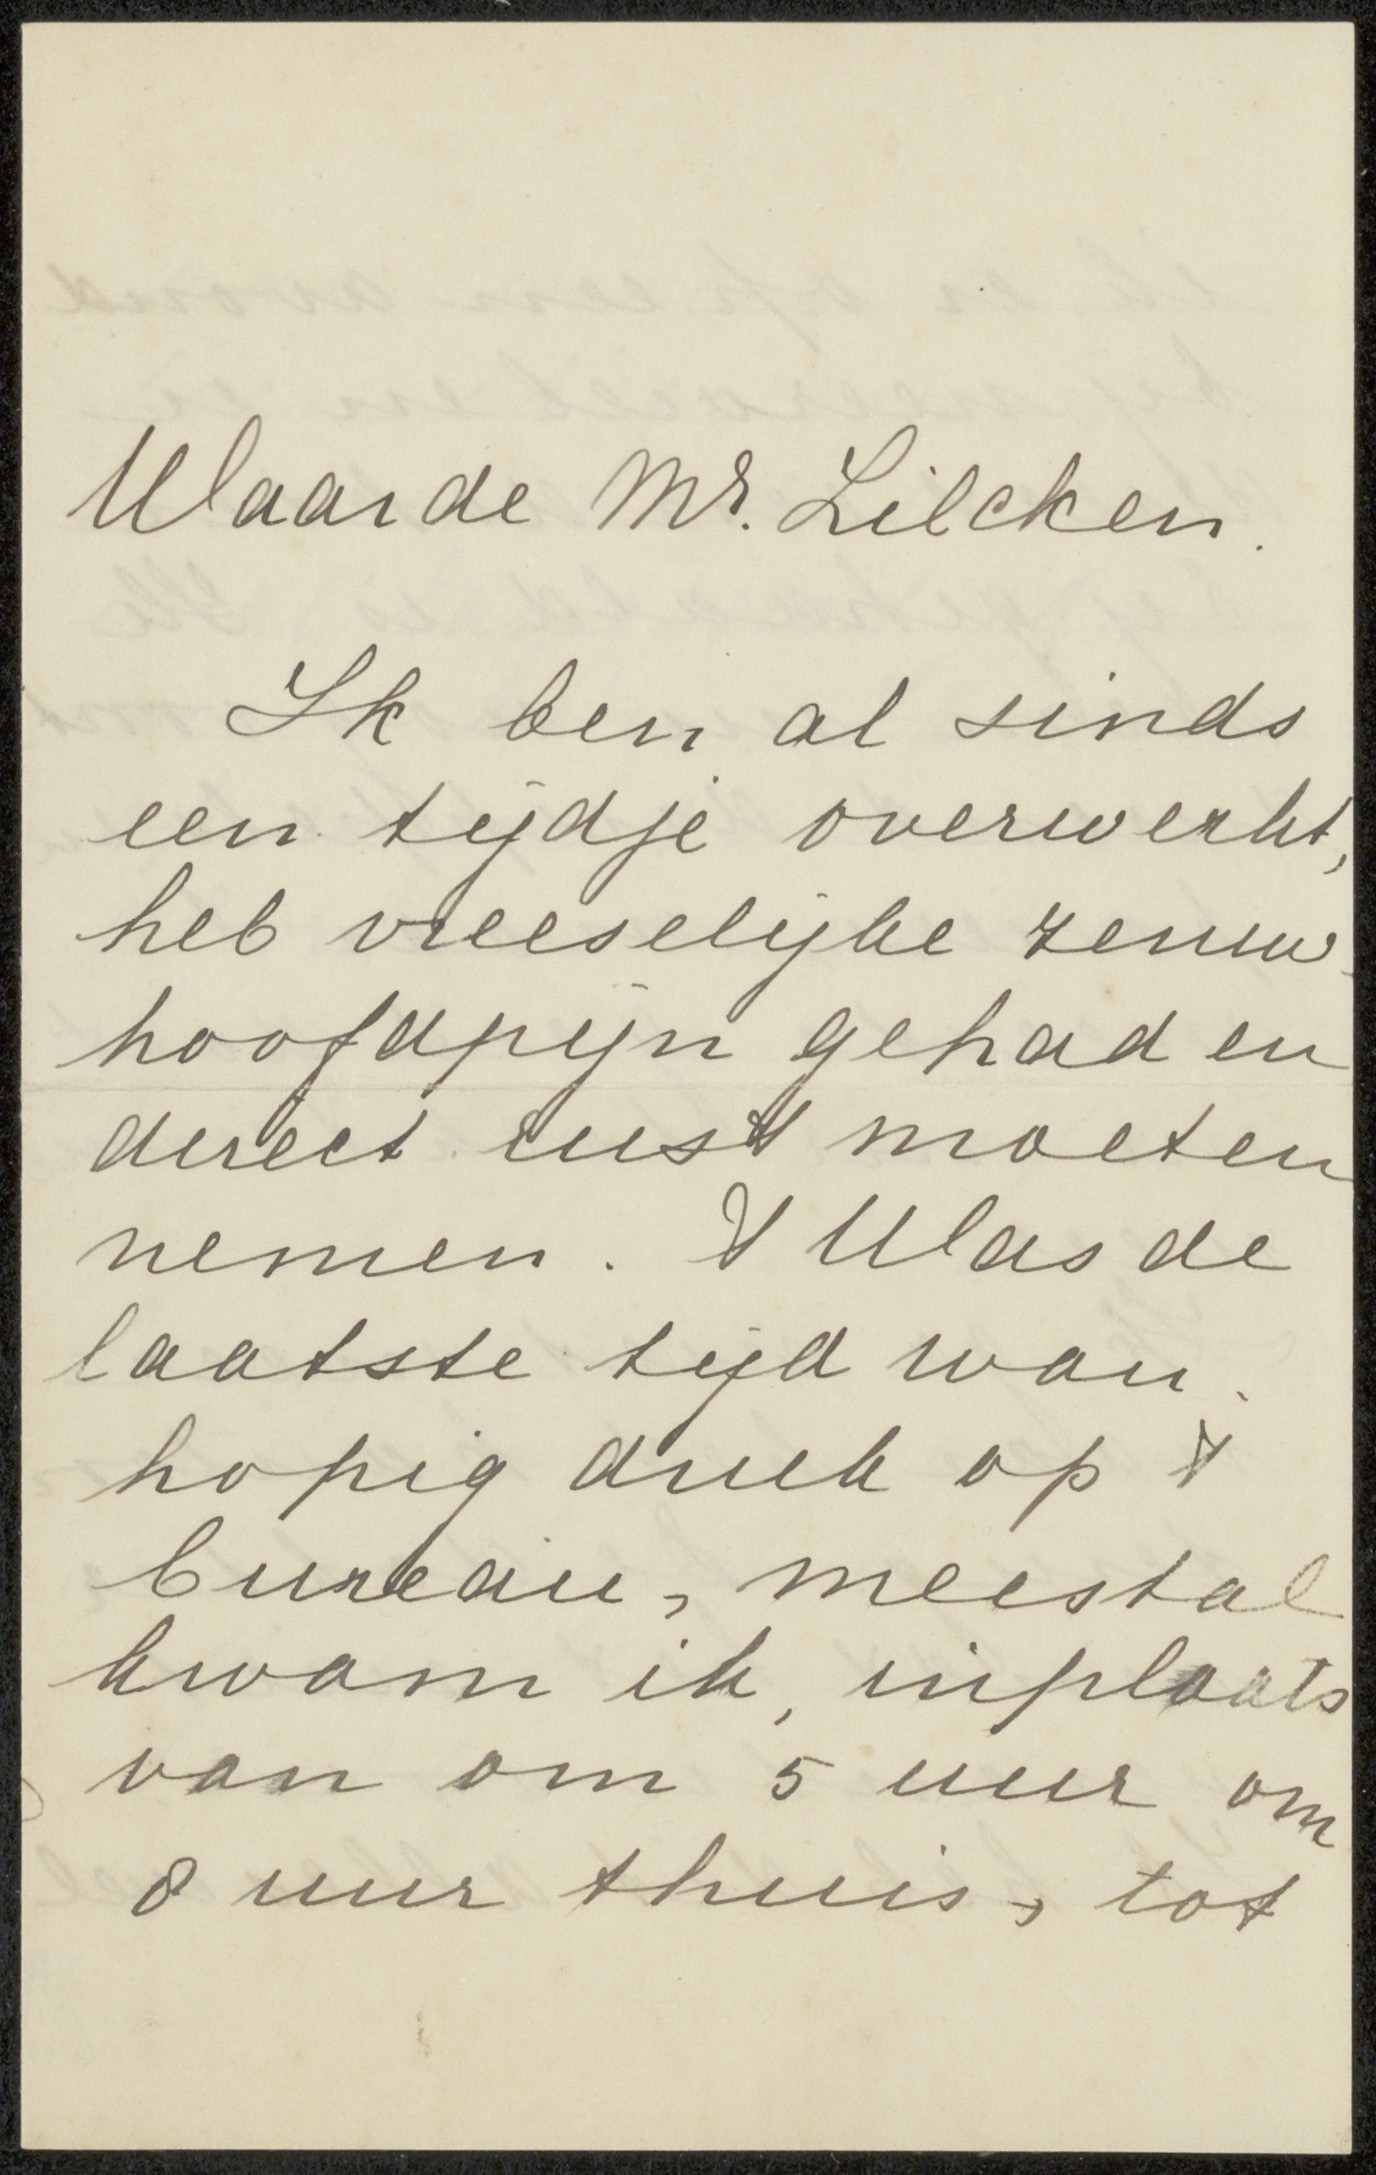 Waarde Mr. Zilcken.
Ik ben al sinds
een tijdje overwerkt,
heb vreeselijke zenuw-
hoofdpijn gehad en
direct rust moeten
nemen. 't Was de
laatste tijd wan-
hopig druk op 't
bureau, meestal
kwam ik, inplaats
van om 5 uur om
8 uur thuis, tot